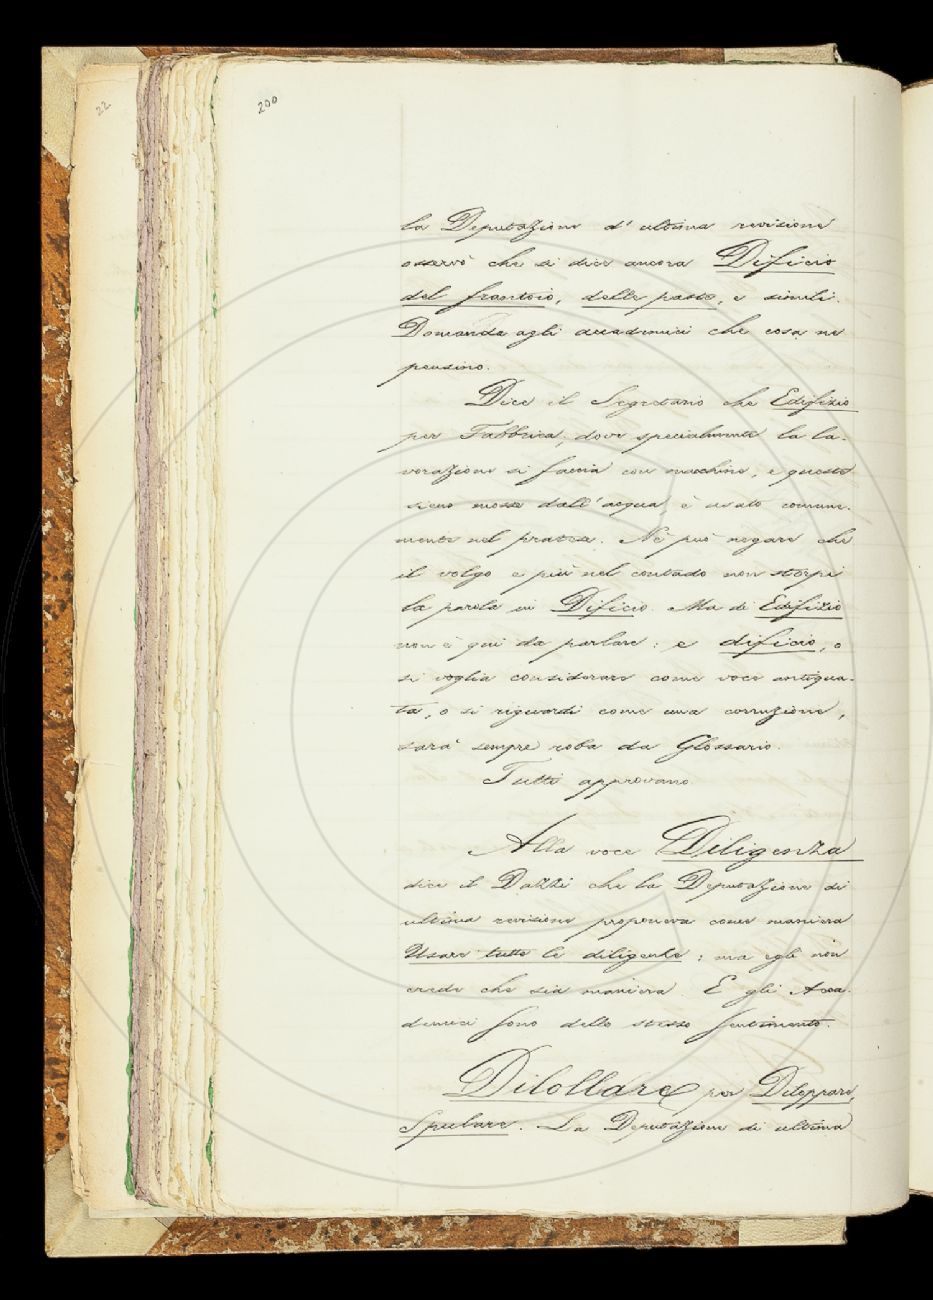 22
200
la Deputazione d'ultima revisione
osservò che si dice ancora Dificio
del frantoio, delle paste, e simili.
Domanda agli accademici che cosa ne
pensino.
Dice il Segretario che Edifizio
per Fabbrica, dove specialmente la la-
vorazione si faccia con macchine, e queste
sieno mosse dall'acqua, è usato comune-
mente nel pratese. Nè può negare che
il volgo e più nel contado non storpi
la parola in Dificio. Ma di Edifizio
non è qui da parlare: e dificio, o
si voglia considerare come voce antiqua-
ta, o si riguardi come una corruzione,
sarà sempre roba da Glossario.
Tutti approvano.
Alla voce Diligenza
dice il Dazzi che la Deputazione di
ultima revisione proponeva come maniera
Usare tutte le diligenze: ma egli non
crede che sia maniera. E gli Acca-
demici sono dello stesso sentimento.
Dilollare per Diloppare,
Spulare. La Deputazione di ultima